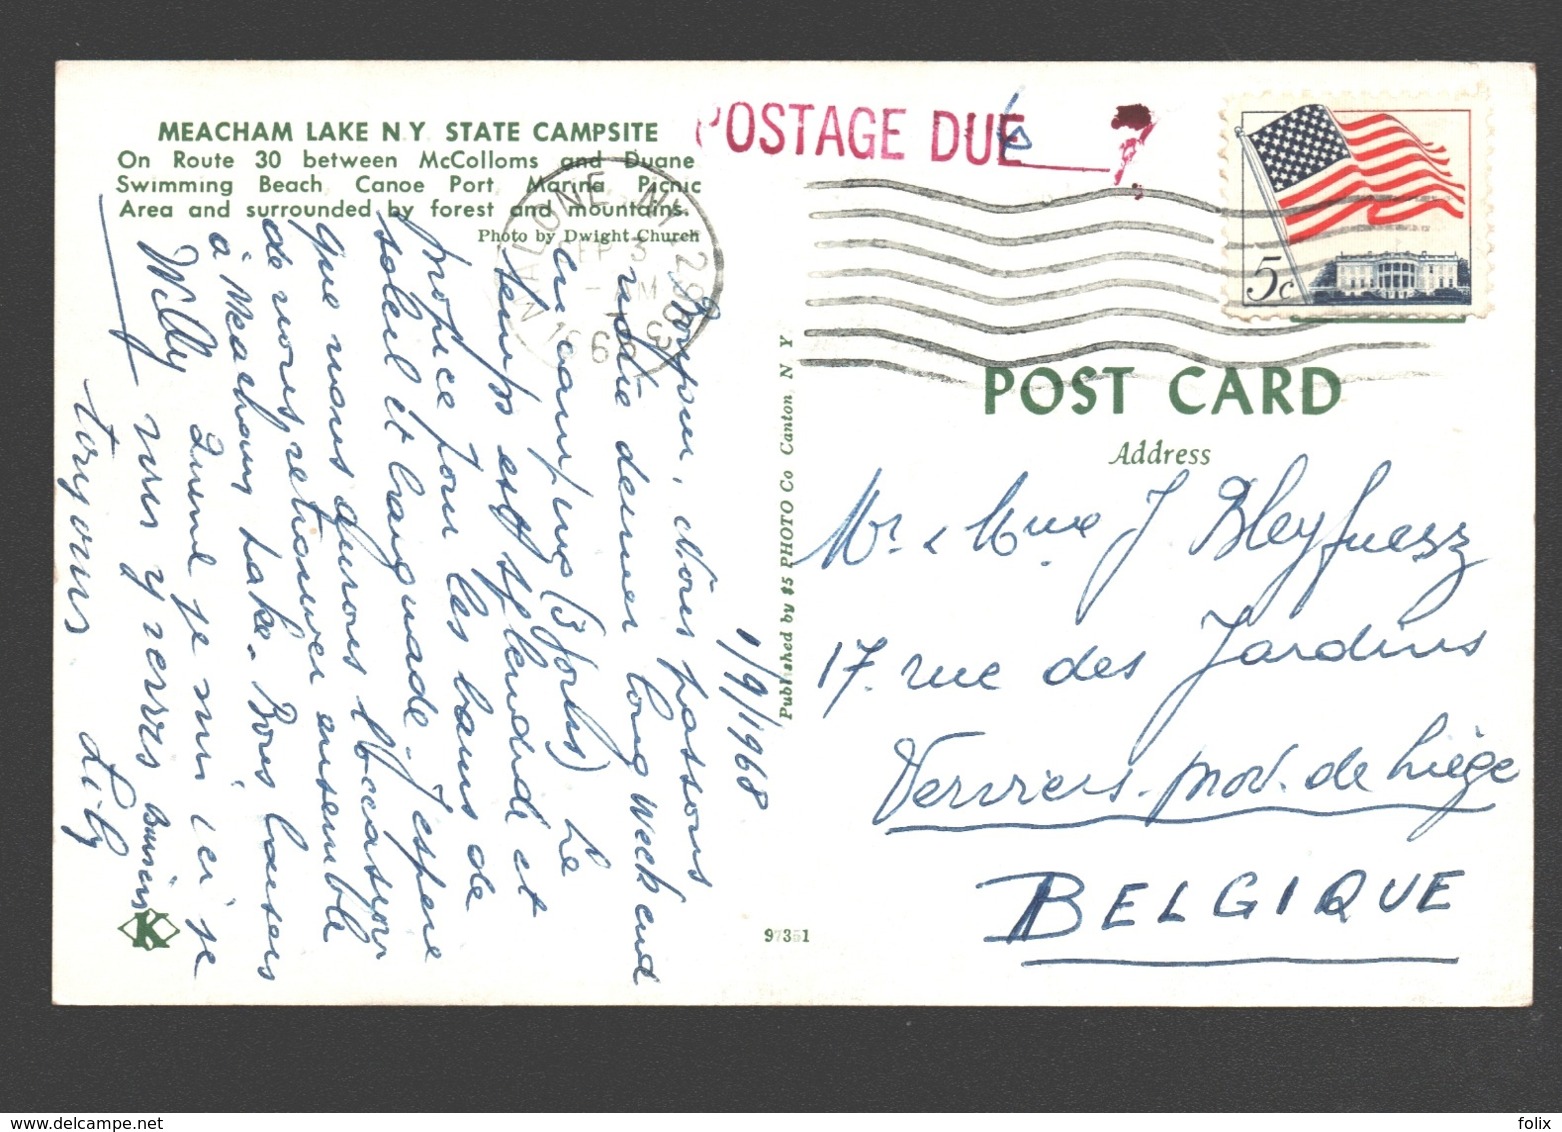 MEACHAM LAKE N.Y. STATE CAMPSITE
On Route 30 between McColloms and Duane
Swimming Beach Canoe Port Marina Picnic
Area and surrounded by forest and mountains.
Photo by Dwight Church
POSTAGE DUE
MALONE, N.Y. 12953
SEP 3
1968
5c
POST CARD
Address
Mr & Mme J Bleyfuesz
17. rue des Jardins
Verviers. prov. de Liège
BELGIQUE
Published by $5 PHOTO Co Canton, N Y
97351
K
1/9/1968
Bonjour, Nous passons
notre dernier long week end
en camping (3 jours) Le
temps est splendide et
propice pour les bains de
soleil et baignade. J'espère
que nous aurons l'occasion
de nous retrouver ensemble
à Meacham Lake. Bons baisers
Quand je suis ici je
nus y verrs
toujours Lily
Willy